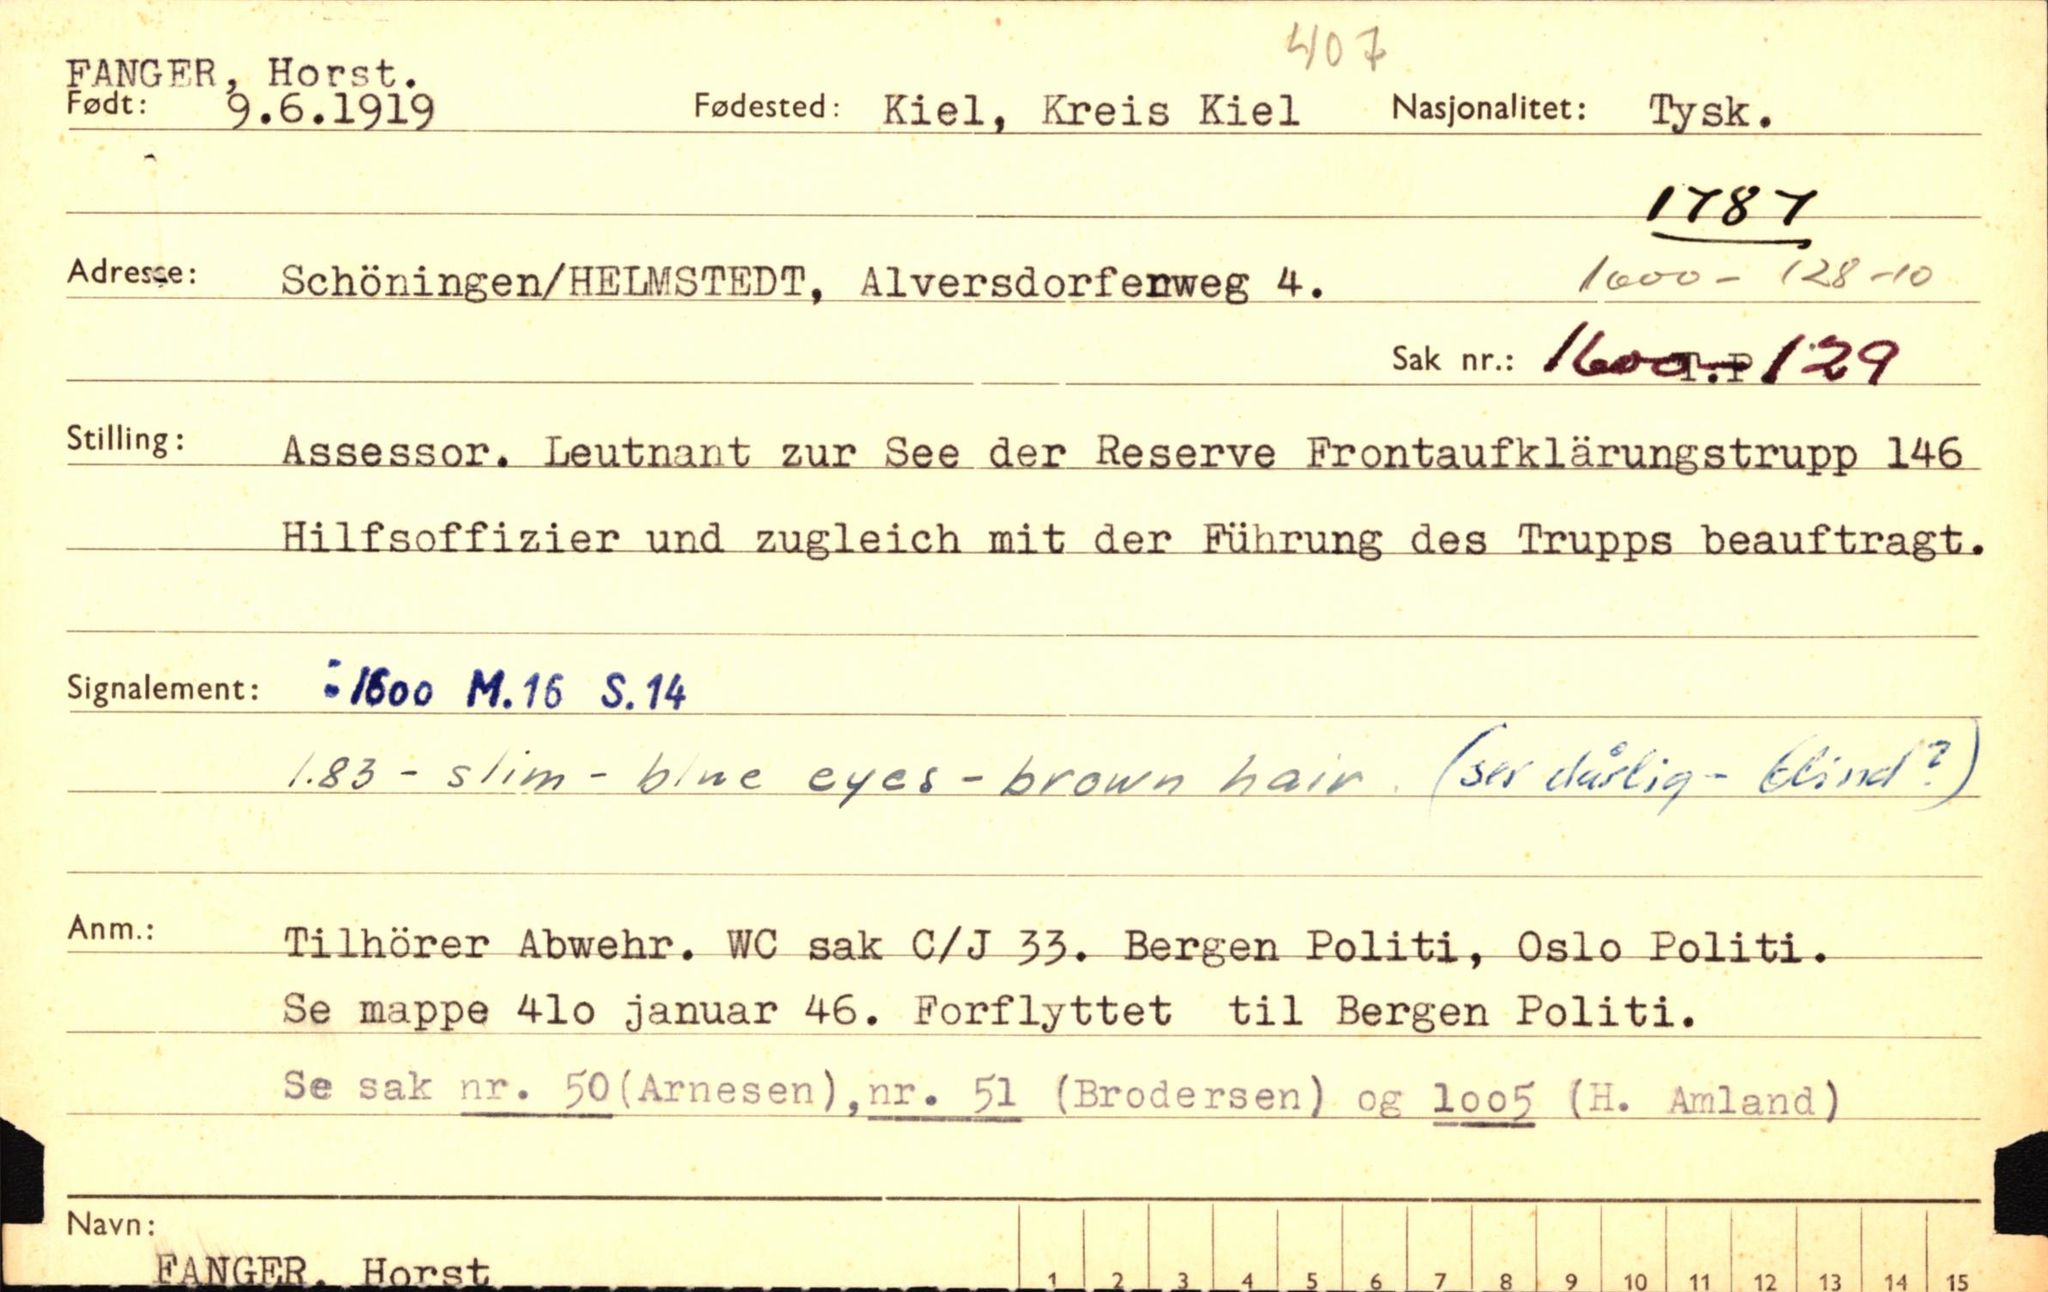 407
FANGER, Horst.
Født: 9.6.1919 Fødested: Kiel, Kreis Kiel Nasjonalitet: Tysk.
1787
Adresse: Schöningen/HELMSTEDT, Alversdorferweg 4. 1600 - 128-10
Sak nr.: 1600-129
Stilling: Assessor. Leutnant zur See der Reserve Frontaufklärungstrupp 146
Hilfsoffizier und zugleich mit der Führung des Trupps beauftragt.
Signalement: : 1600 M.16 S.14
1.83 - slim - blue eyes - brown hair. (ser dårlig - blind?)
Anm.: Tilhörer Abwehr. WC sak C/J 33. Bergen Politi, Oslo Politi.
Se mappe 41o januar 46. Forflyttet til Bergen Politi.
Se sak nr. 50(Arnesen),nr. 51 (Brodersen) og 1oo5 (H. Amland)
Navn:
FANGER, Horst
1 2 3 4 5 6 7 8 9 10 11 12 13 14 15